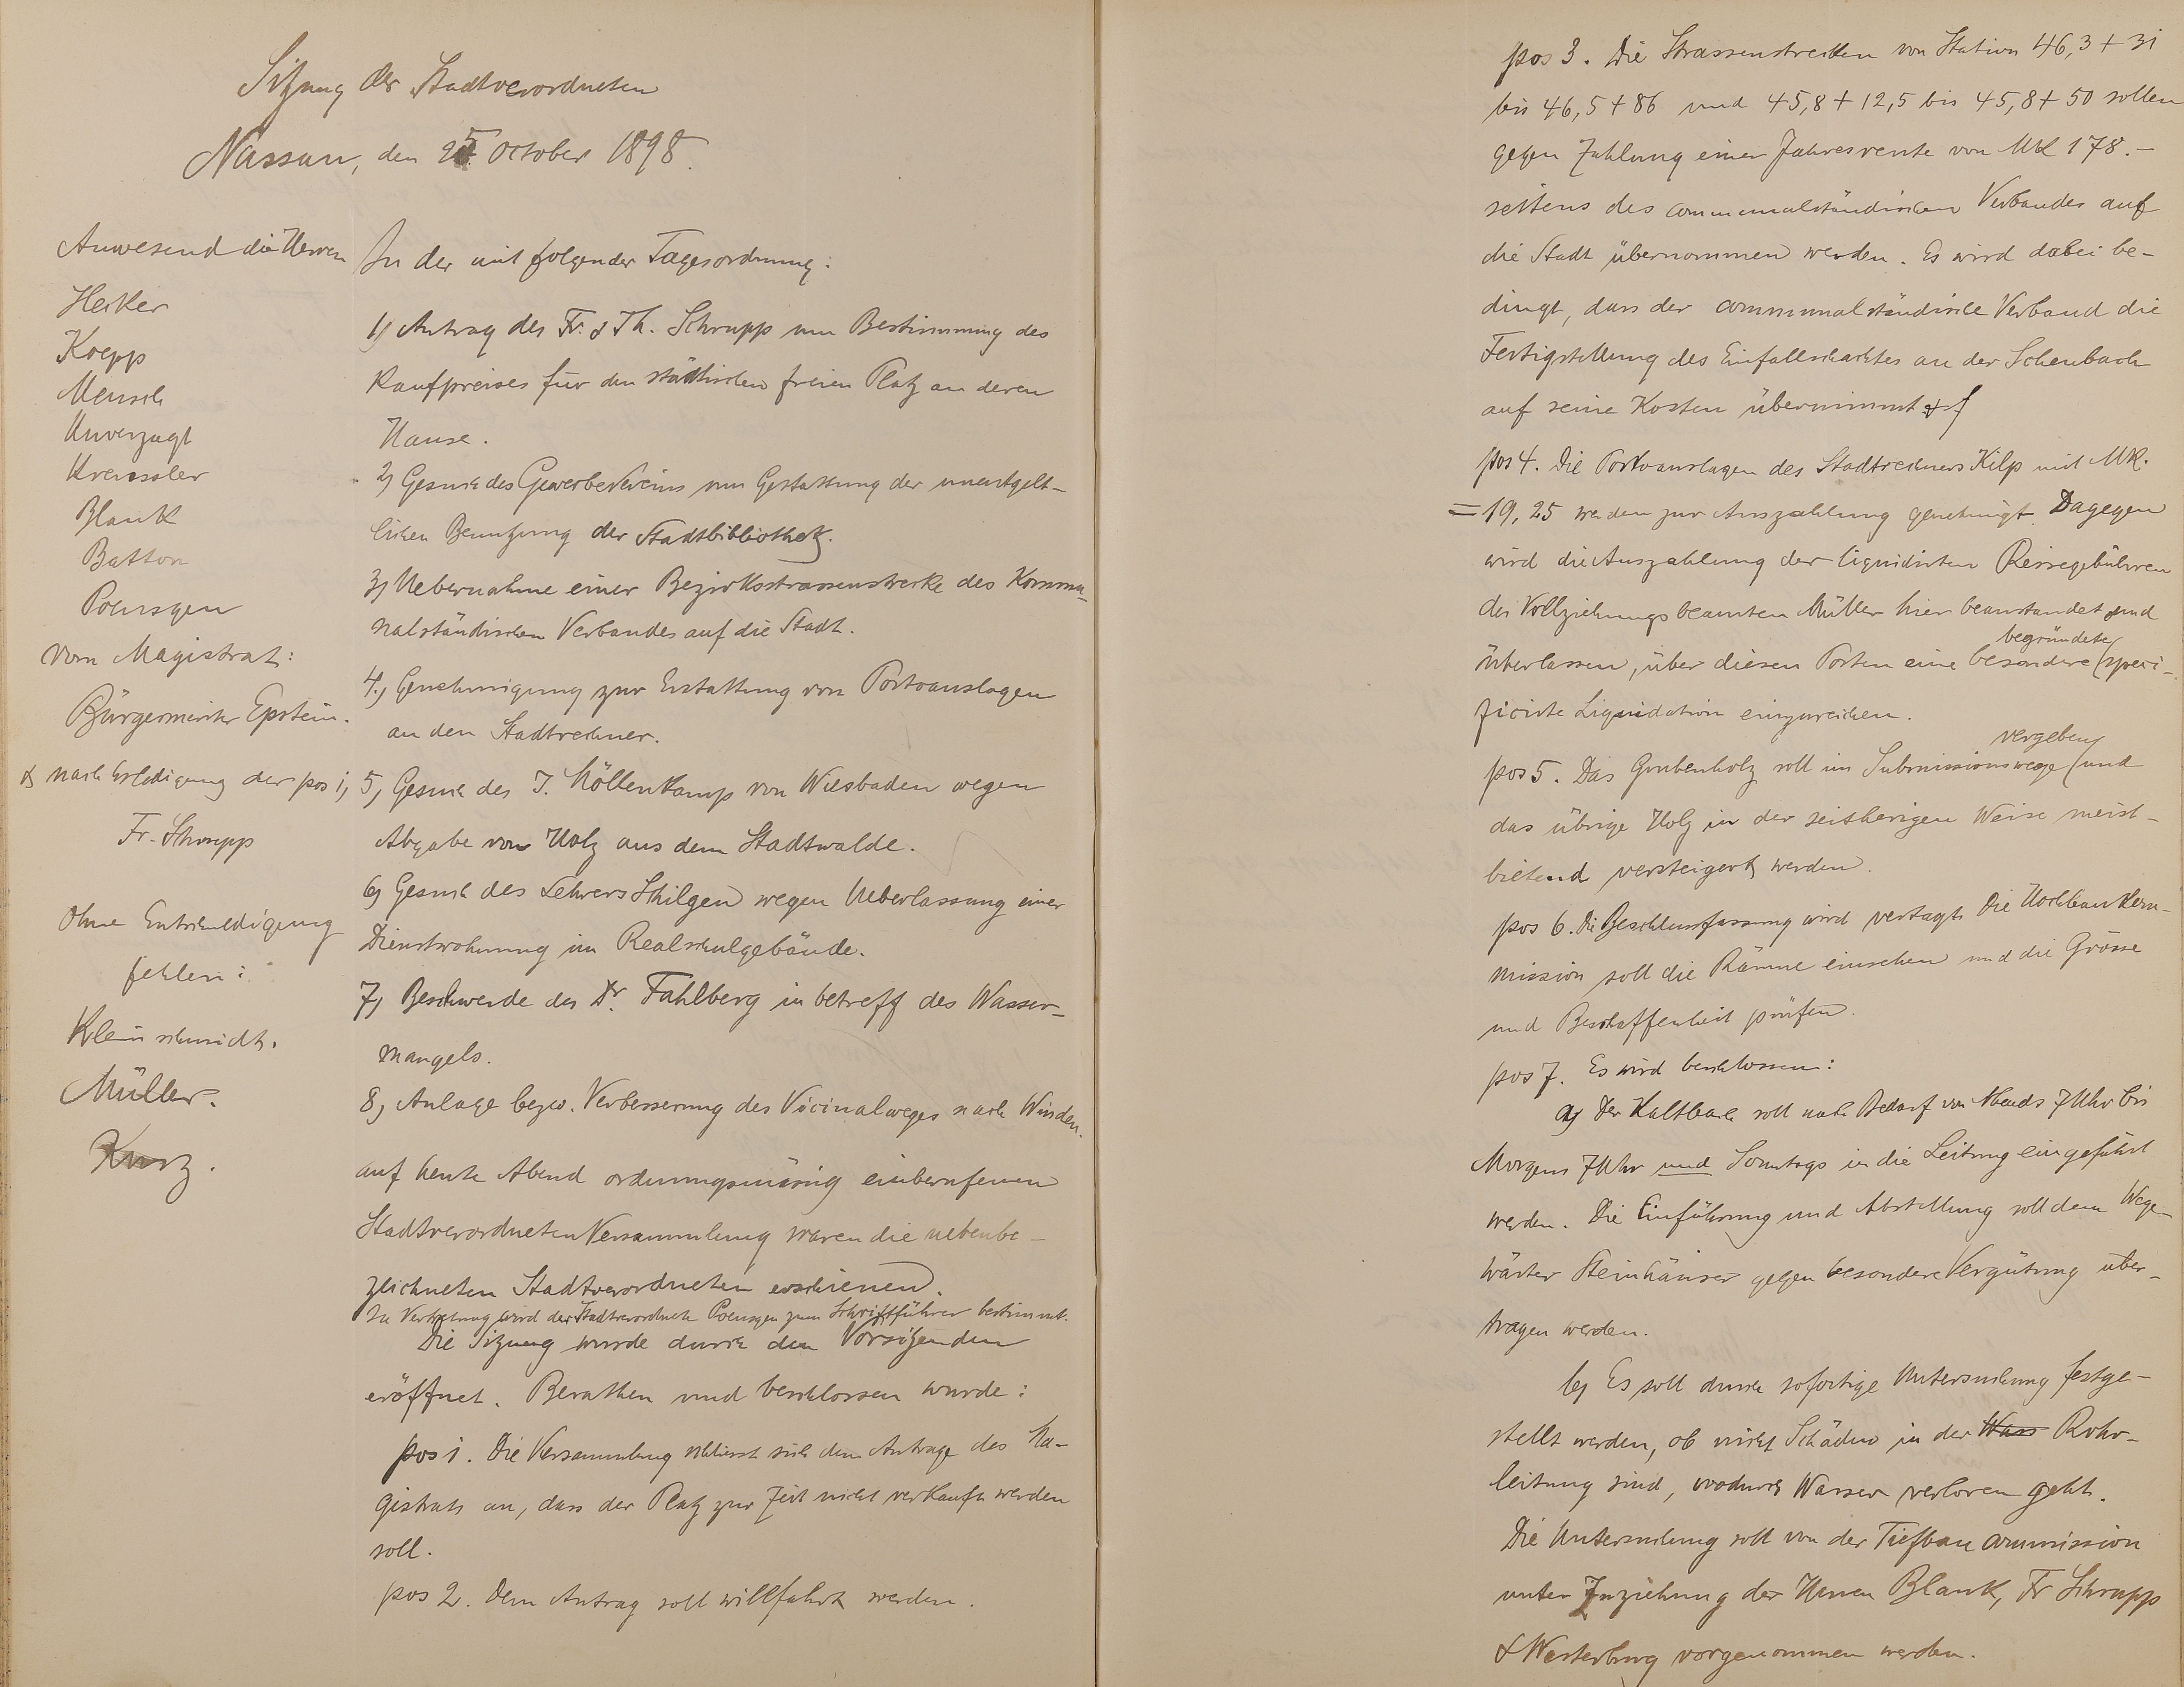 Sitzung der Stadtverordneten
Nassau, den 25. October 1898.
Anwesend die Herren
Herker
Koepp
Mensch
Unverzagt
Kreussler
Blank
Batton
Poensgen
vom Magistrat:
Bürgermeister Epstein.
& nach Erledigung der pos 1,
Fr. Schrupp
Ohne Entschuldigung
fehlen:
Kleinschmidt.
Müller.
Kurz.
In der mit folgender Tagesordnung:
1) Antrag des Fr. & Th. Schrupp um Bestimmung des
Kaufpreises für den städtischen freien Platz an deren
Hause.
2) Gesuch des Gewerbevereins um Gestattung der unentgelt-
lichen Benutzung der Stadtbibliothek.
3) Uebernahme einer Bezirksstrassenstrecke des Kommu-
nalständischen Verbandes auf die Stadt.
4.) Genehmigung zur Erstattung von Portoauslagen
an den Stadtrechner.
5) Gesuch des J. Möllenkamp von Wiesbaden wegen
Abgabe von Holz aus dem Stadtwalde.
6) Gesuch des Lehrers Hilgen wegen Ueberlassung einer
Dienstwohnung im Realschulgebäude.
7) Beschwerde des Dr. Fahlberg in betreff des Wasser-
mangels.
8) Anlage bezw. Verbesserung des Vicinalweges nach Winden.
auf heute Abend ordnungsmässig einberufenen
Stadtverordneten Versammlung waren die nebenbe-
zeichneten Stadtverordneten erschienen.
In Vertretung wird der Stadtverordnete Poensgen zum Schriftführer bestimmt.
Die Sitzung wurde durch den Vorsitzenden
eröffnet. Berathen und beschlossen wurde:
pos 1. Die Versammlung schliesst sich dem Antrage des Ma-
gistrats an, dass der Platz zur Zeit nicht verkauft werden
soll.
pos 2. Dem Antrag soll willfahrt werden.
pos 3. Die Strassenstrecken von Station 46,3 + 31
bis 46,5 + 86 und 45,8 + 12,5 bis 45,8 + 50 sollen
gegen Zahlung einer Jahresrente von Mk 178.-
seitens des communalständischen Verbandes auf
die Stadt übernommen werden. Es wird dabei be-
dingt, dass der communalständische Verband die
Fertigstellung des Einfallschachtes an der Schenbach
auf seine Kosten übernimmt
pos 4. Die Portoauslagen des Stadtrechners Kilp mit Mk.
= 19,25 werden zur Auszahlung genehmigt. Dagegen
wird die Auszahlung der liquidirten Reisegebühren
des Vollziehungsbeamten Müller hier beanstandet und
begründete
überlassen, über diesen Posten eine besondere speci-
ficirte Liquidation einzureichen.
vergeben
pos 5. Das Grubenholz soll im Submissionswege und
das übrige Holz in der seitherigen Weise meist-
bietend versteigert werden.
pos 6. Die Beschlussfassung wird vertagt. Die Hochbaukom-
mission soll die Räume einsehen und die Grösse
und Beschaffenheit prüfen.
pos 7. Es wird beschlossen:
a) Der Kaltbach soll nach Bedarf von Abends 7 Uhr bis
Morgens 7 Uhr und Sonntags in die Leitung eingeführt
werden. Die Einführung und Abstellung soll dem Wege-
wärter Steinhäuser gegen besondere Vergütung über-
tragen werden.
b) Es soll durch sofortige Untersuchung festge-
stellt werden, ob nicht Schäden in der Wass Rohr-
leitung sind, wodurch Wasser verloren geht.
Die Untersuchung soll von der Tiefbau commission
unter Zuziehung der Herren Blank, Fr Schrupp
& Westerburg vorgenommen werden.